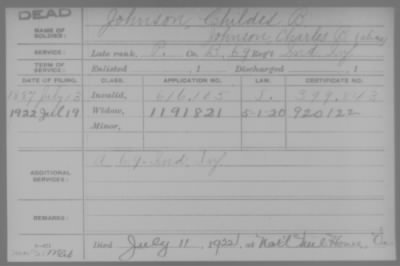 DEAD
NAME OF SOLDIER: Johnson, Childes B.
Johnson, Charles B. (alias)
SERVICE: Late rank, P. Co. B, 69 Reg't Ind. Inf.
TERM OF SERVICE: Enlisted , 1 Discharged , 1
DATE OF FILING: CLASS. APPLICATION NO. LAW. CERTIFICATE NO.
1887 July 13 Invalid, 616,105
1922 Jul 19 Widow, 1191821 5-1-20 920122
Minor,
ADDITIONAL SERVICES:
REMARKS:
Died July 11, 1922, at Nat'l Home,